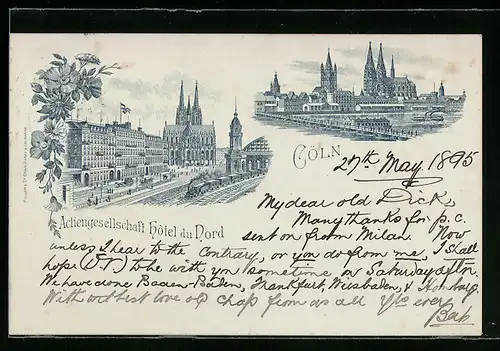 CÖLN
27th May 1895
Actiengesellschaft Hôtel du Nord
My dear old Dick,
Many thanks for p.c.
sent on from Milan. Now
unless I hear to the contrary, or you do from me, I shall
hope (D.V.) to be with you sometime on Saturday aftn.
We have done Baden-Baden, Frankfurt, Wiesbaden, & Homburg.
With very best love old chap from us all Yrs ever
Bob